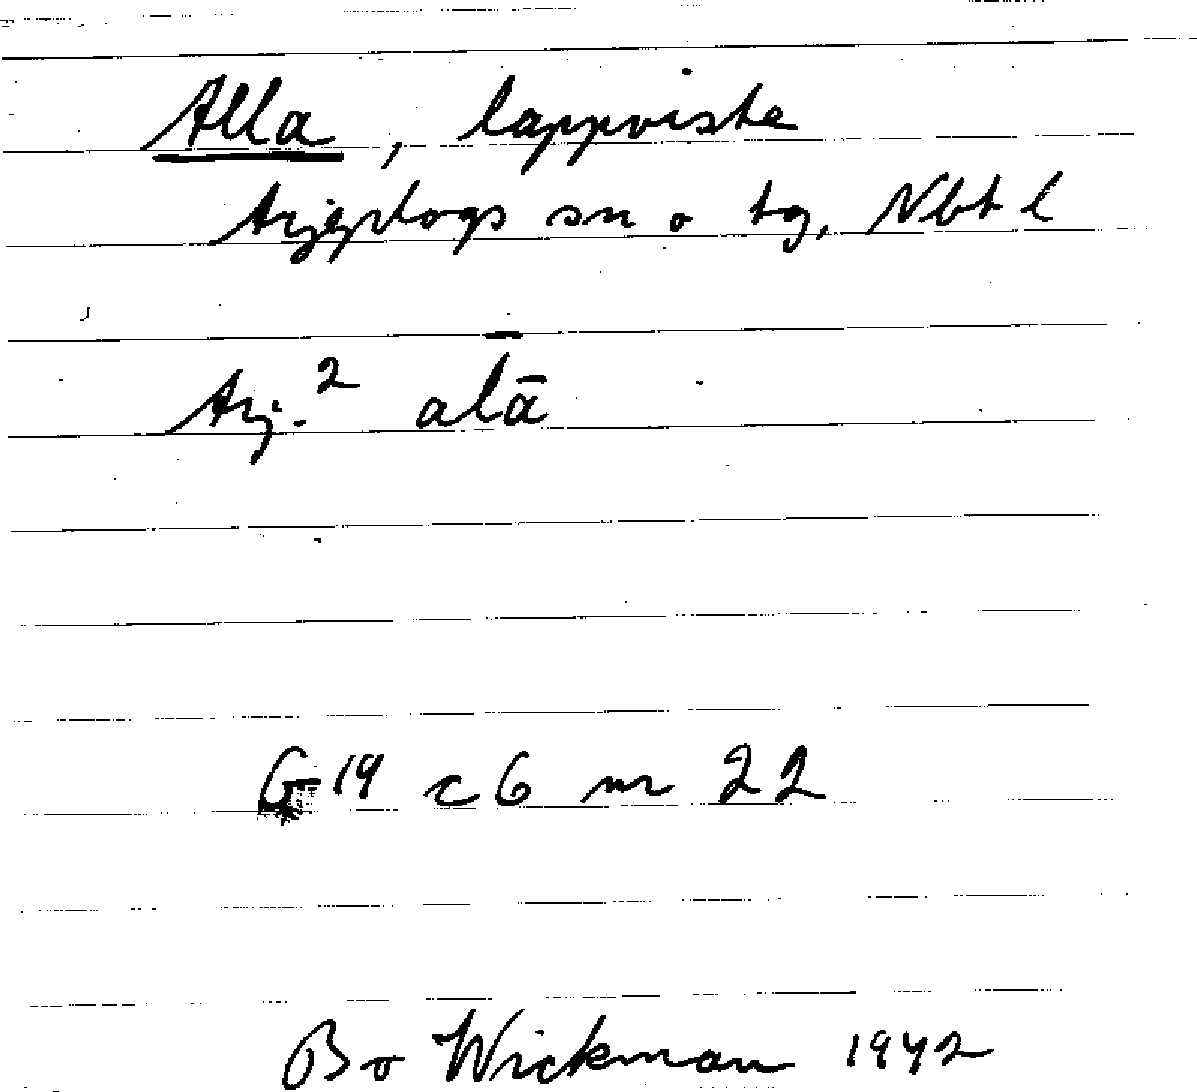 Alla, lappviste
Arjeplogs sn o tg, Nbt l
Arj.² alā
G 19 c 6 nr 22
Bo Wickman 1942